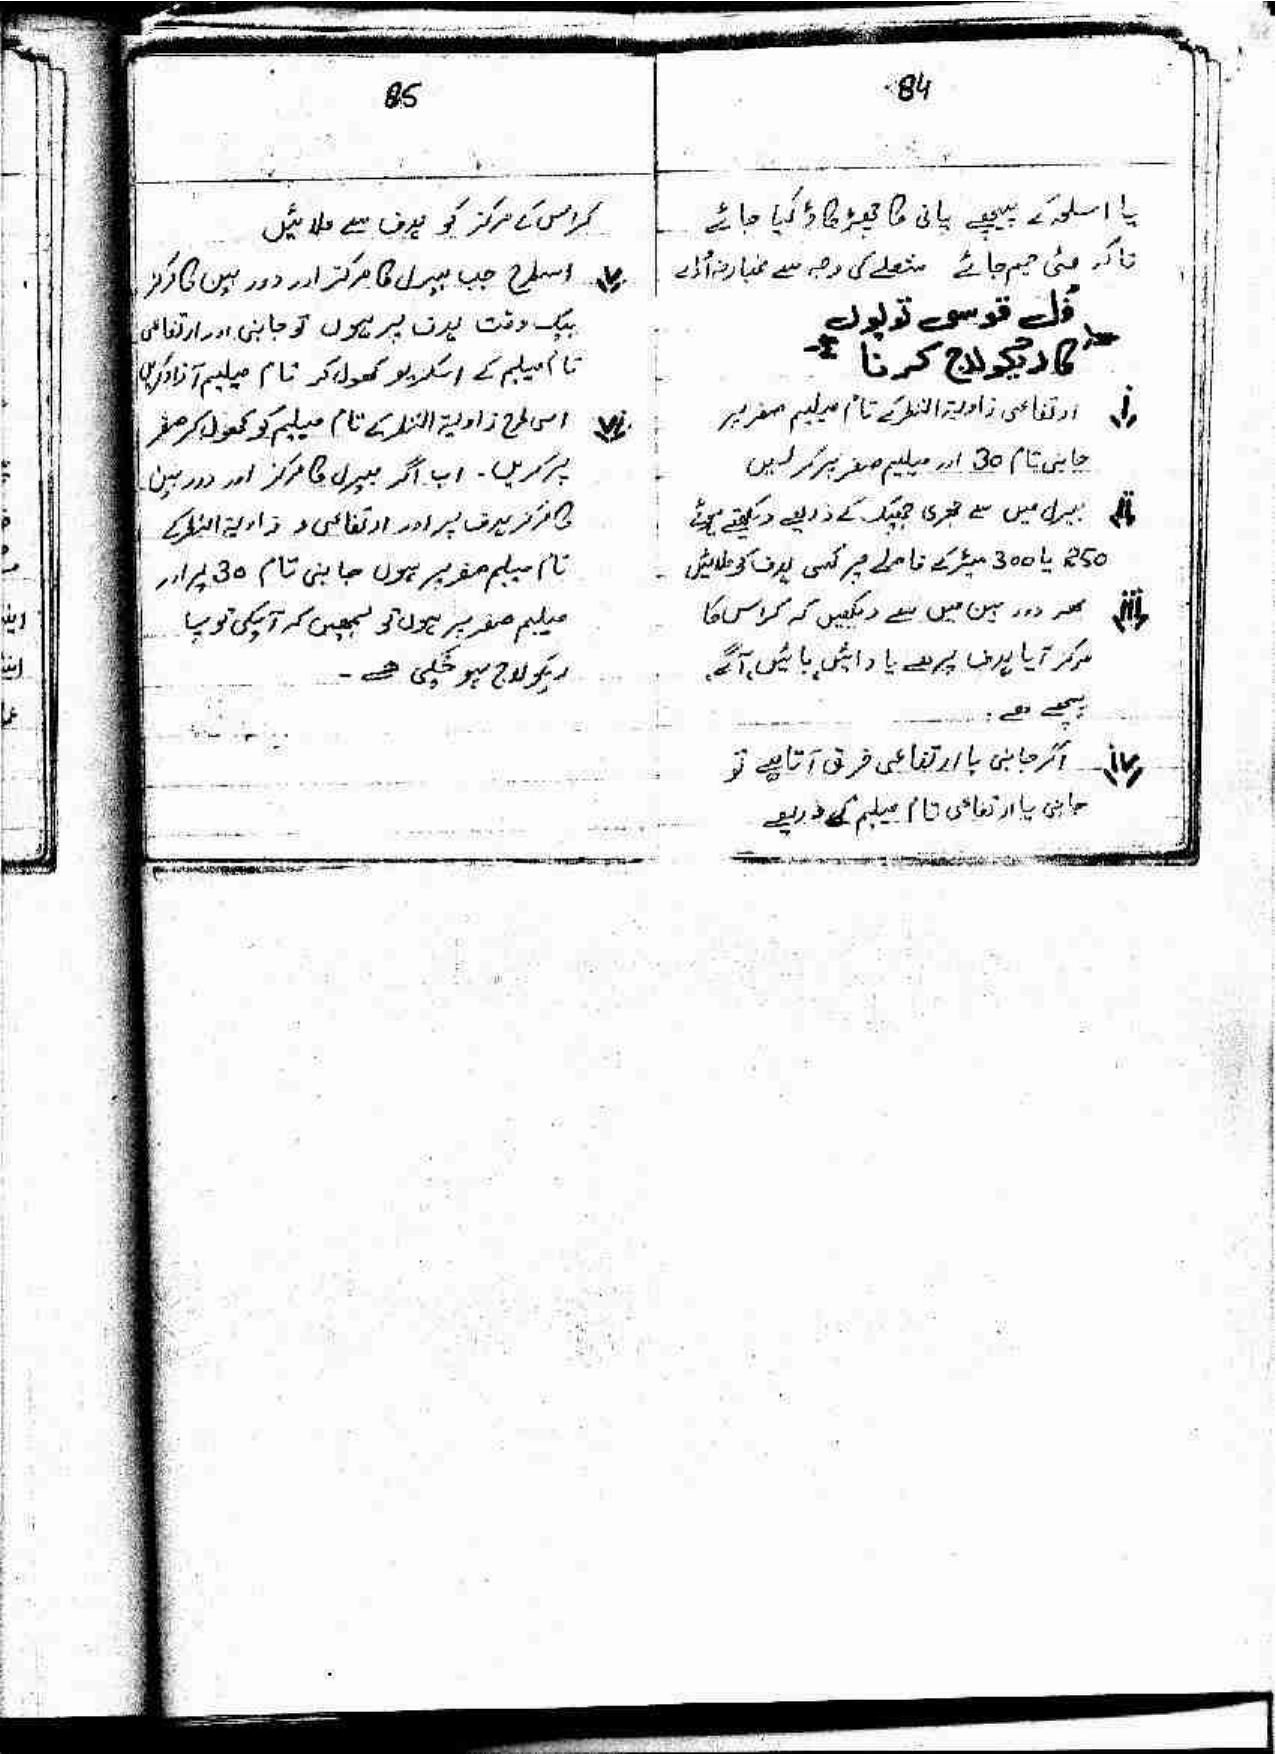 84
یا اسلحہ کے پیچھے پانی کا چھڑکاؤ کیا جائے
تاکہ مٹی جم جائے شعلے کی وجہ سے غبار نہ اُڑے
فل قوسی توپوں
کا ریکولاج کرنا
i ارتفاعی زاویۃ النظر کے تمام میلیم صفر پر
جانبی تام 30 اور میلیم صفر پر کر لیں
ii بیرل میں سے جھری چیک کے ذریعے دیکھتے ہوئے
250 یا 300 میٹر کے فاصلے پر کسی ہدف کو ملائیں
iii پھر دور بین میں سے دیکھیں کہ کراس کا
مرکز آیا ہدف پر ہے یا دائیں، بائیں، آگے،
پیچھے ہے۔
iv اگر جانبی یا ارتفاعی فرق آتا ہے تو
جانبی یا ارتفاعی تام میلیم کے ذریعے
85
کراس کے مرکز کو ہدف سے ملائیں
v اسطرح جب بیرل کا مرکز اور دور بین کا مرکز
بیک وقت ہدف پر ہوں تو جانبی اور ارتفاعی
تام میلیم کے اسکریو کھول کر تام میلیم آزاد کریں
vi اسی طرح زاویۃ النظر کے تام میلیم کو کھول کر صفر
پر کریں۔ اب اگر بیرل کا مرکز اور دور بین
کا مرکز ہدف پر اور ارتفاعی و زاویۃ النظر کے
تام میلیم صفر پر ہوں جانبی تام 30 پر اور
میلیم صفر پر ہوں تو سمجھیں کہ آپکی توپ
ریکولاج ہو چُکی ہے۔